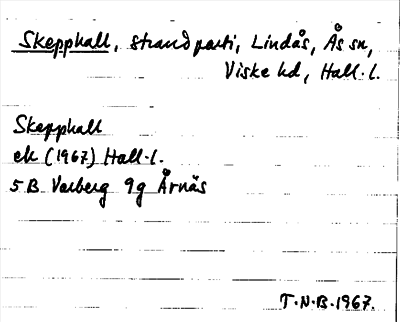 Skepphall, strandparti, Lindås, Ås sn,
Viske hd, Hall. l.
Skepphall
ek (1967) Hall. l.
5B Varberg 9g Årnäs
T.N.B. 1967.